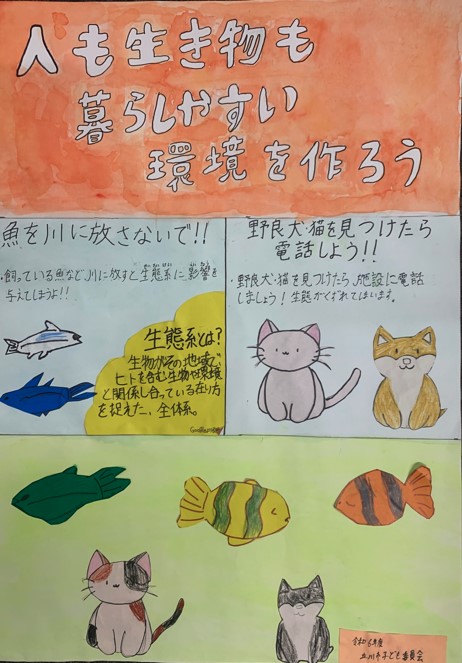 人も生き物も
暮らしやすい
環境を作ろう
魚を川に放さないで!!
・飼っている魚など、川に放すと生態系に影響を
与えてしまうよ!!
生態系とは?
生物がその地域で
ヒトを含む生物や環境
と関係し合っている在り方
を捉えた、全体系。
野良犬・猫を見つけたら
電話しよう!!
・野良犬・猫を見つけたら、施設に電話
しましょう!生態がくずれてしまいます。
令和6年度
立川市子ども委員会